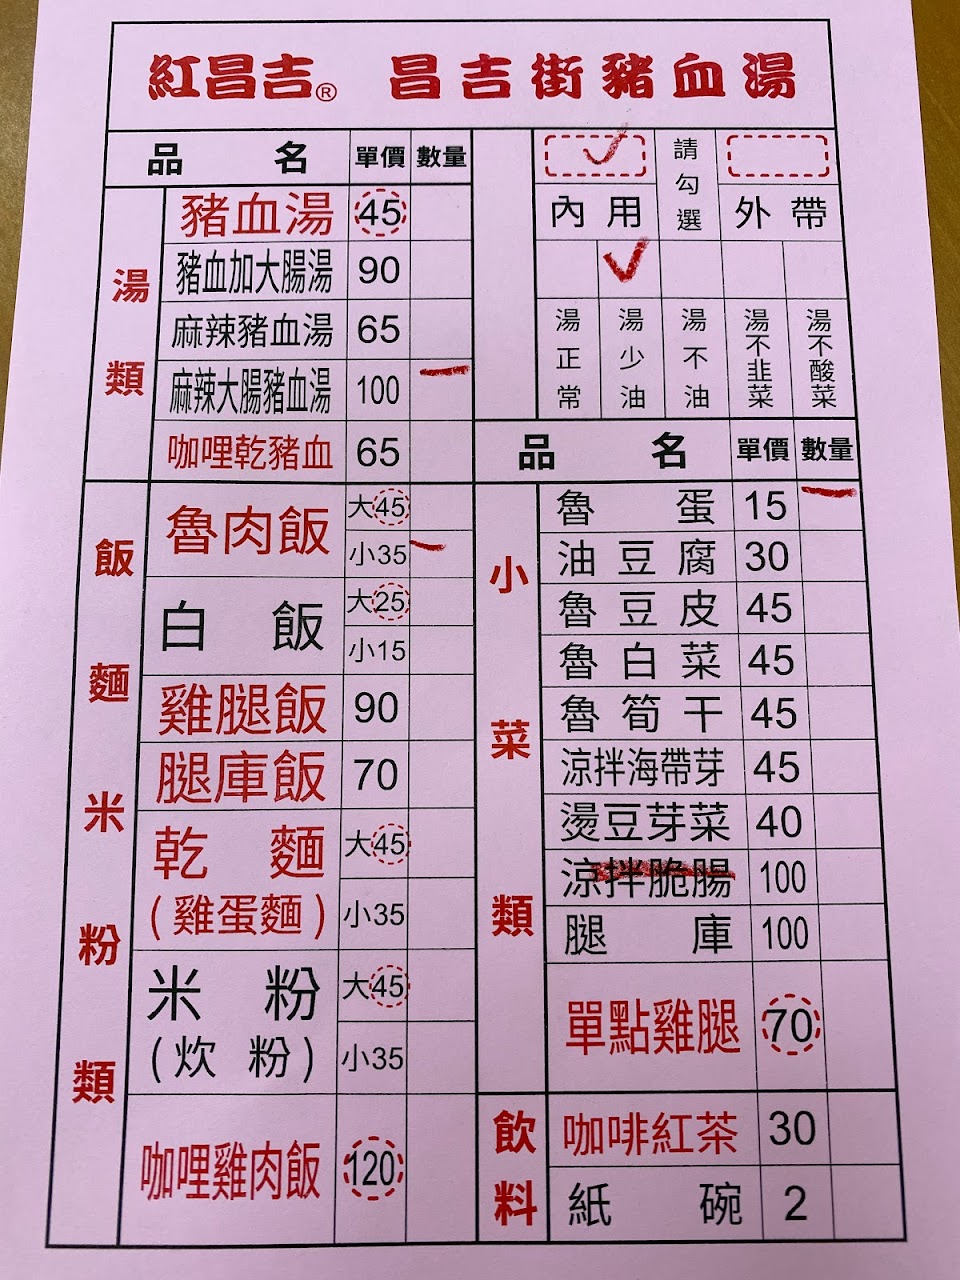 紅昌吉® 昌吉街豬血湯
品名 單價 數量
湯類
豬血湯 45
豬血加大腸湯 90
麻辣豬血湯 65
麻辣大腸豬血湯 100 一
咖哩乾豬血 65
飯麵米粉類
魯肉飯 大45
小35 一
白飯 大25
小15
雞腿飯 90
腿庫飯 70
乾麵 大45
(雞蛋麵) 小35
米粉 大45
(炊粉) 小35
咖哩雞肉飯 120
✓ 內用 請勾選 外帶
✓
湯正常 湯少油 湯不油 湯不韭菜 湯不酸菜
品名 單價 數量
小菜類
魯蛋 15 一
油豆腐 30
魯豆皮 45
魯白菜 45
魯筍干 45
涼拌海帶芽 45
燙豆芽菜 40
涼拌脆腸 100
腿庫 100
單點雞腿 70
飲料
咖啡紅茶 30
紙碗 2